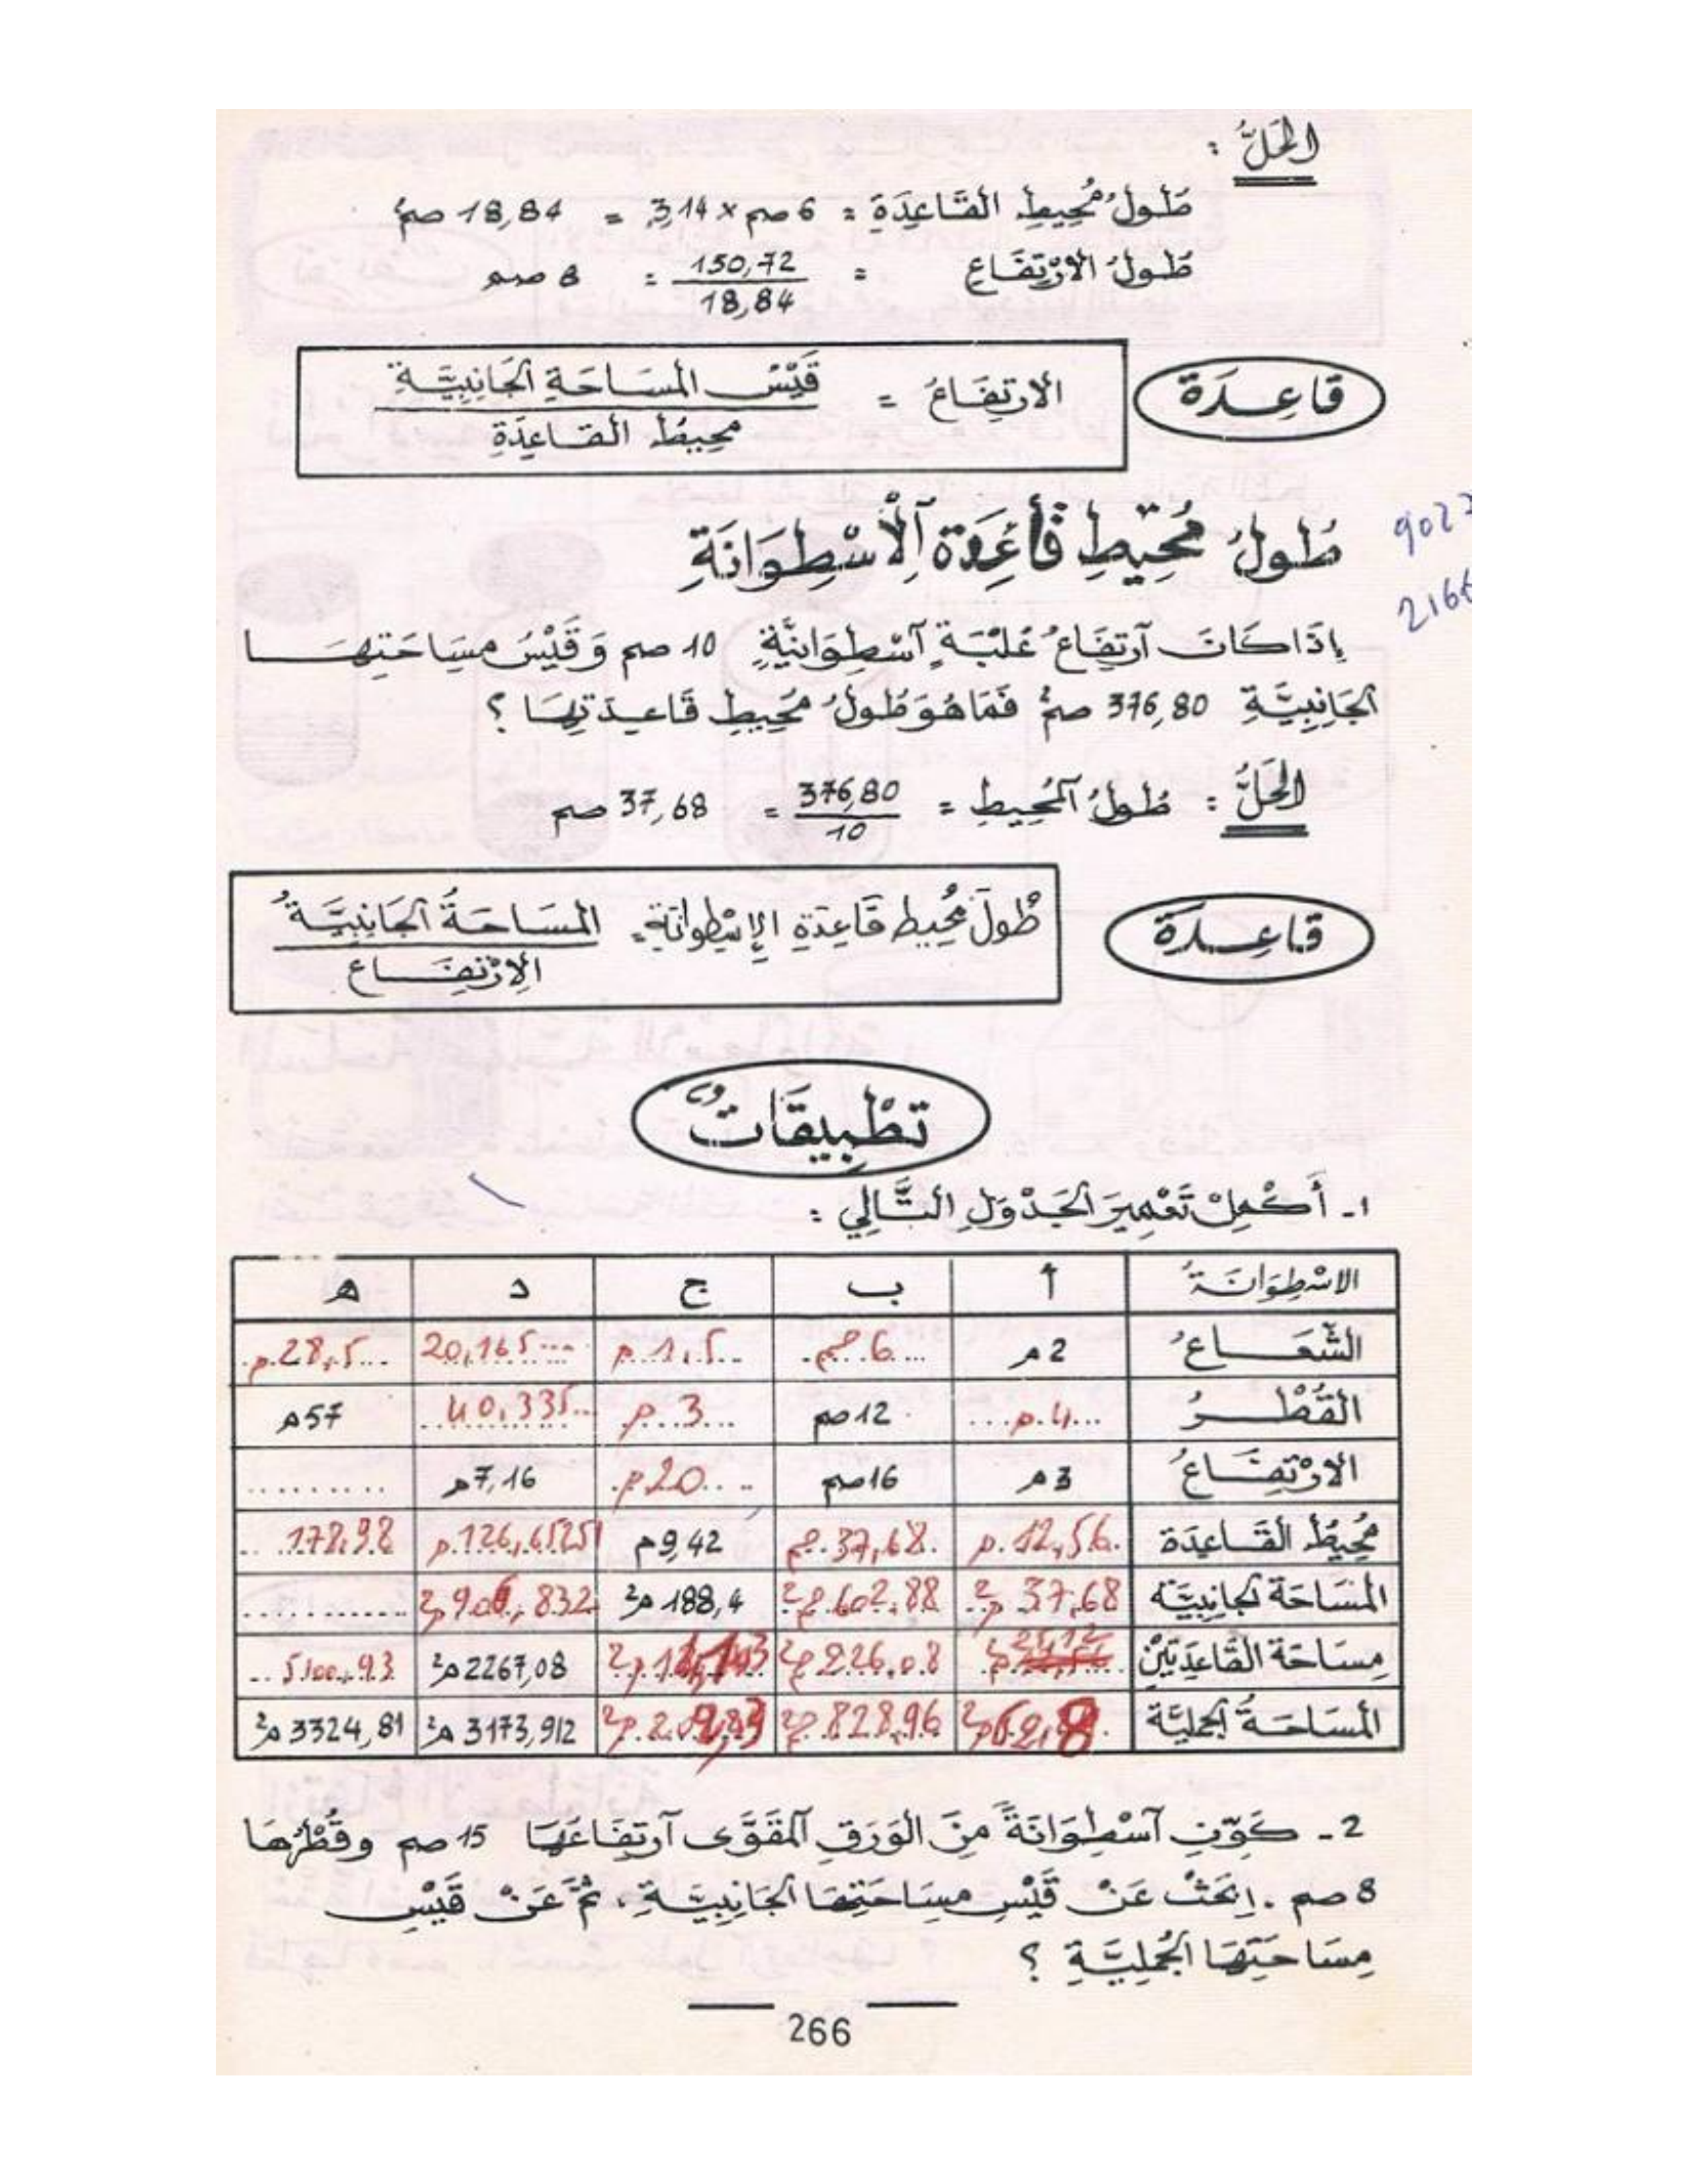 الحَلُّ :
طُولُ مُحِيطِ القَاعِدَةِ = 6 صم × 3,14 = 18,84 صم²
طُولُ الارْتِفَاعِ = 150,72 / 18,84 = 8 صم
قَاعِدَة
الارتِفَاعُ = قَيْسُ المسَاحَةِ الجَانِبِيَّةِ / محِيطُ القاعِدَةِ
طُولُ مُحِيطِ قَاعِدَةِ آلْأُسْطِوَانَةِ
9022
2166
إِذَا كَانَ آرتِفَاعُ عُلْبَةٍ آسْطِوَانِيَّةٍ 10 صم وَقَيْسُ مسَاحَتِهَا
الجَانِبِيَّةِ 376,80 صم² فَمَا هُوَ طُولُ مُحِيطِ قَاعِدَتِهَا ؟
الحَلُّ : طُولُ آلمُحِيطِ = 376,80 / 10 = 37,68 صم
قَاعِدَة
طُولُ مُحِيط قَاعِدَةِ الإسْطِوَانَةِ = المسَاحَةُ الجَانِبِيَّةُ / الارْتِفَاع
تَطْبِيقَاتٌ
1- أَكْمِلْ تَعْمِيرَ الجَدْوَلِ التَّالِي :
الاسْطِوَانَةُ أ ب ج د ه
الشُّعَاعُ 2م 6 صم 1,5 م 20,165 28,5 م
القُطْرُ 4 م 12 صم 3 م 40,335 57م
الارْتِفَاعُ 3م 16صم 20 م 7,16م .........
مُحِيطُ القَاعِدَة 12,56 م 37,68 صم 9,42م 126,65251 م 178,98
المسَاحَة الجَانِبِيَّة 37,68 م² 602,88 صم² 188,4 م² 906,832 م² ............
مِسَاحَة القَاعِدَتَيْنِ 25,12 م² 226,08 صم² 2267,08 م² 5100,93
المسَاحَةُ الجمليَّة 62,8 م² 828,96 صم² 3173,912 م² 3324,81 م²
2- كَوِّنِ آسْطِوَانَةً مِنَ الوَرَقِ آلمُقَوَّى آرتِفَاعُهَا 15 صم وقُطْرُهَا
8 صم . اِبْحَثْ عَنْ قَيْسِ مِسَاحَتِهَا الجَانِبِيَّةِ، ثُمَّ عَنْ قَيْسِ
مِسَاحَتِهَا الجُمْلِيَّةِ ؟
266